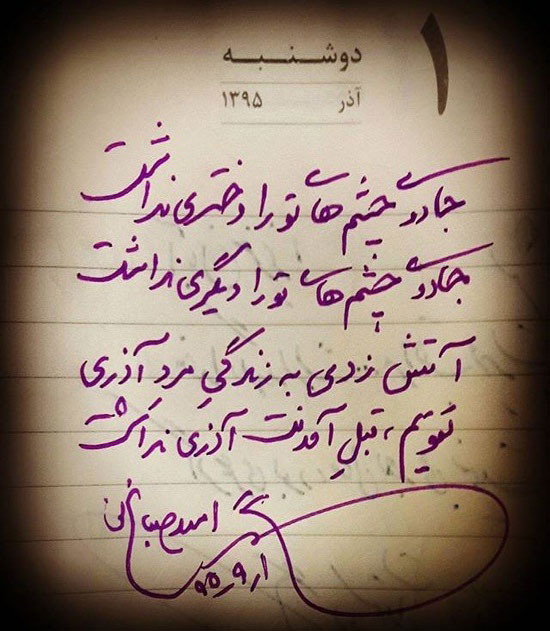 ۱
دوشنبه
آذر ۱۳۹۵
جادوی چشم‌های تو را دختری نداشت
جادوی چشم‌های تو را دیگری نداشت
آتش زدی به زندگیِ مردِ آذری
تقویم، قبلِ آمدنت آذری نداشت
امید صباغ نو
۹۵٫۹٫۱